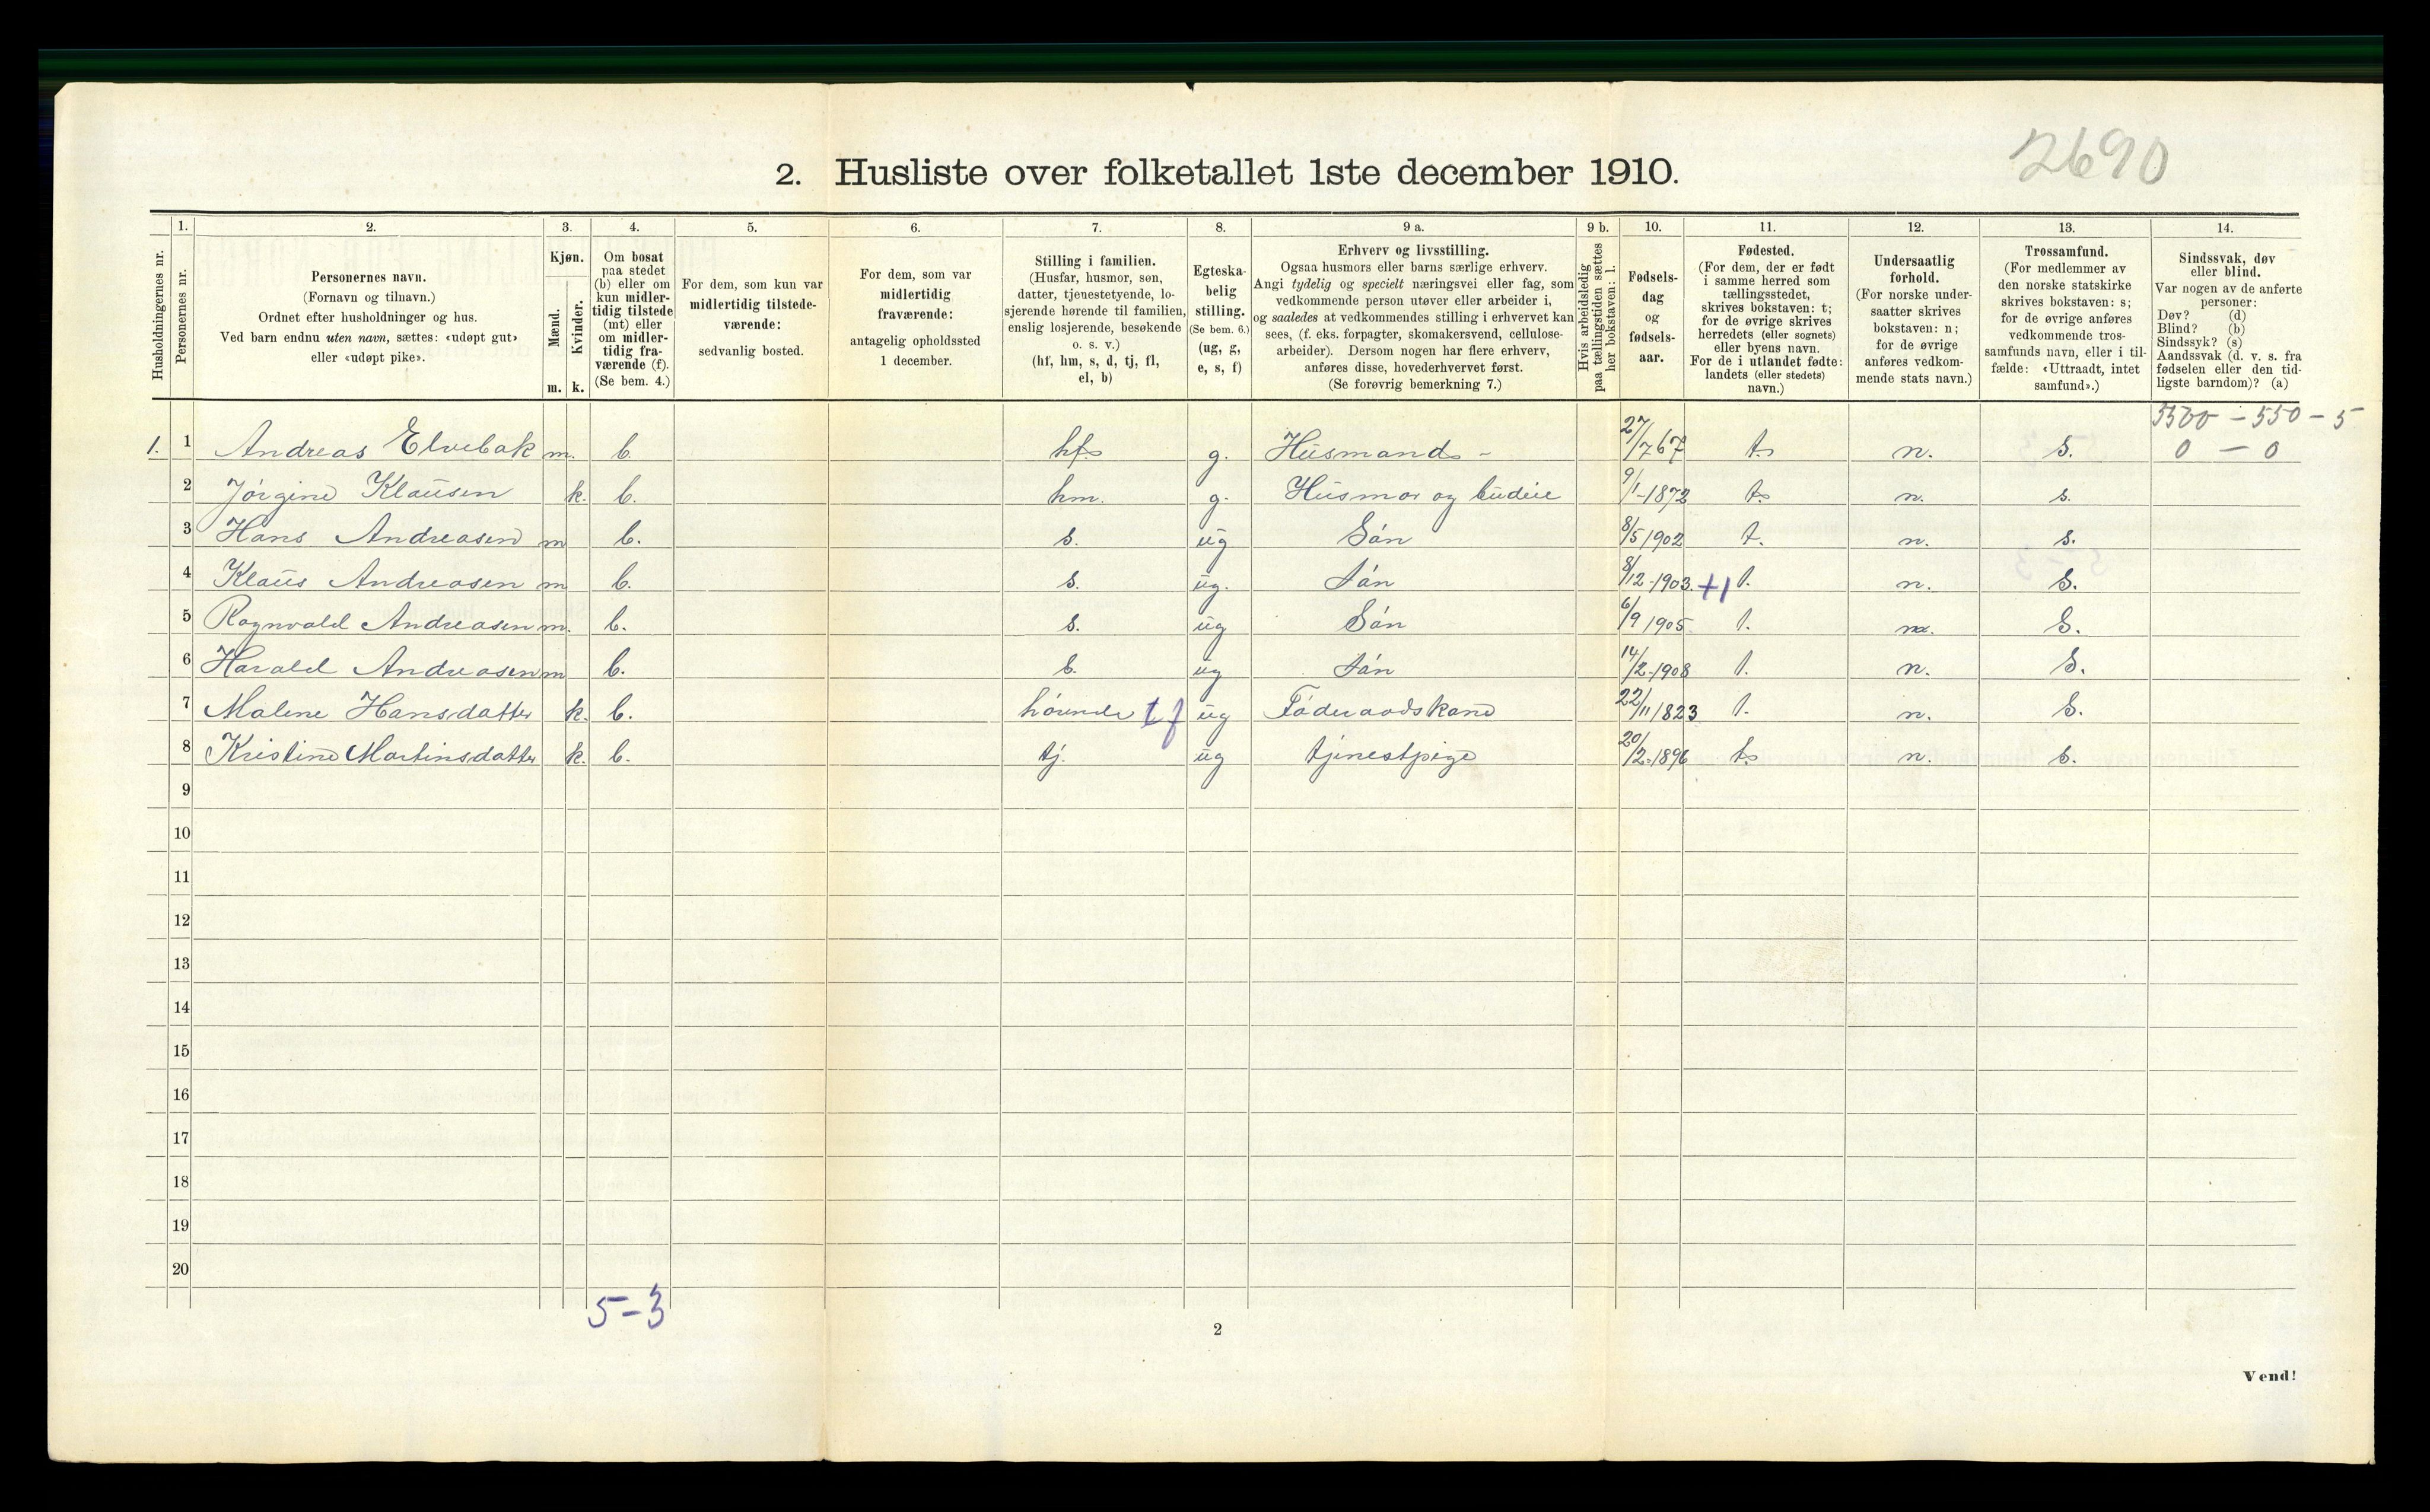 2690
2. Husliste over folketallet 1ste december 1910.
Husholdningernes nr.
1.
Personernes nr.
2.
Personernes navn.
(Fornavn og tilnavn.)
Ordnet efter husholdninger og hus.
Ved barn endnu uten navn, sættes: «udøpt gut»
eller «udøpt pike».
3.
Kjøn.
Mænd.
Kvinder.
m. k.
4.
Om bosat
paa stedet
(b) eller om
kun midler-
tidig tilstede
(mt) eller
om midler-
tidig fra-
værende (f).
(Se bem. 4.)
5.
For dem, som kun var
midlertidig tilstede-
værende:
sedvanlig bosted.
6.
For dem, som var
midlertidig
fraværende:
antagelig opholdssted
1 december.
7.
Stilling i familien.
(Husfar, husmor, søn,
datter, tjenestetyende, lo-
sjerende hørende til familien,
enslig losjerende, besøkende
o. s. v.)
(hf, hm, s, d, tj, fl,
el, b)
8.
Egteska-
belig
stilling.
(Se bem. 6.)
(ug, g,
e, s, f)
9 a.
Erhverv og livsstilling.
Ogsaa husmors eller barns særlige erhverv.
Angi tydelig og specielt næringsvei eller fag, som
vedkommende person utøver eller arbeider i,
og saaledes at vedkommendes stilling i erhvervet kan
sees, (f. eks. forpagter, skomakersvend, cellulose-
arbeider). Dersom nogen har flere erhverv,
anføres disse, hovederhvervet først.
(Se forøvrig bemerkning 7.)
9 b.
Hvis arbeidsledig
paa tællingstiden sættes
her bokstaven: l.
10.
Fødsels-
dag
og
fødsels-
aar.
11.
Fødested.
(For dem, der er født
i samme herred som
tællingsstedet,
skrives bokstaven: t;
for de øvrige skrives
herredets (eller sognets)
eller byens navn.
For de i utlandet fødte:
landets (eller stedets)
navn.)
12.
Undersaatlig
forhold.
(For norske under-
saatter skrives
bokstaven: n;
for de øvrige
anføres vedkom-
mende stats navn.)
13.
Trossamfund.
(For medlemmer av
den norske statskirke
skrives bokstaven: s;
for de øvrige anføres
vedkommende tros-
samfunds navn, eller i til-
fælde: «Uttraadt, intet
samfund».)
14.
Sindssvak, døv
eller blind.
Var nogen av de anførte
personer:
Døv? (d)
Blind? (b)
Sindssyk? (s)
Aandssvak (d. v. s. fra
fødselen eller den tid-
ligste barndom)? (a)
5500 - 550 - 5
0 - 0
1. 1 Andreas Elvebak m. b. hf. g. Husmand - 27/7 67 t. n. S.
2 Jørgine Klausen k. b. hm. g. Husmor og budeie 9/1-1872 t. n. s.
3 Hans Andreasen m b. s. ug Søn 8/5 1902 t. n. s.
4 Klaus Andreasen m b. s. ug. Søn 8/12-1903. +1 t. n. S.
5 Ragnvald Andreasen m. b. s. ug Søn 6/9 1905 t. n. S.
6 Harald Andreasen m b. s. ug Søn 14/2-1908 t. n. S.
7 Malene Hansdatter k. b. hørende tf ug Føderaadskone 22/11 1823 t. n. S.
8 Kristine Martinsdatter k. b. tj. ug tjenestpige 20/2-1896 t. n. s.
9
10
11
12
13
14
15
16
17
18
19
20
5-3
2
Vend!